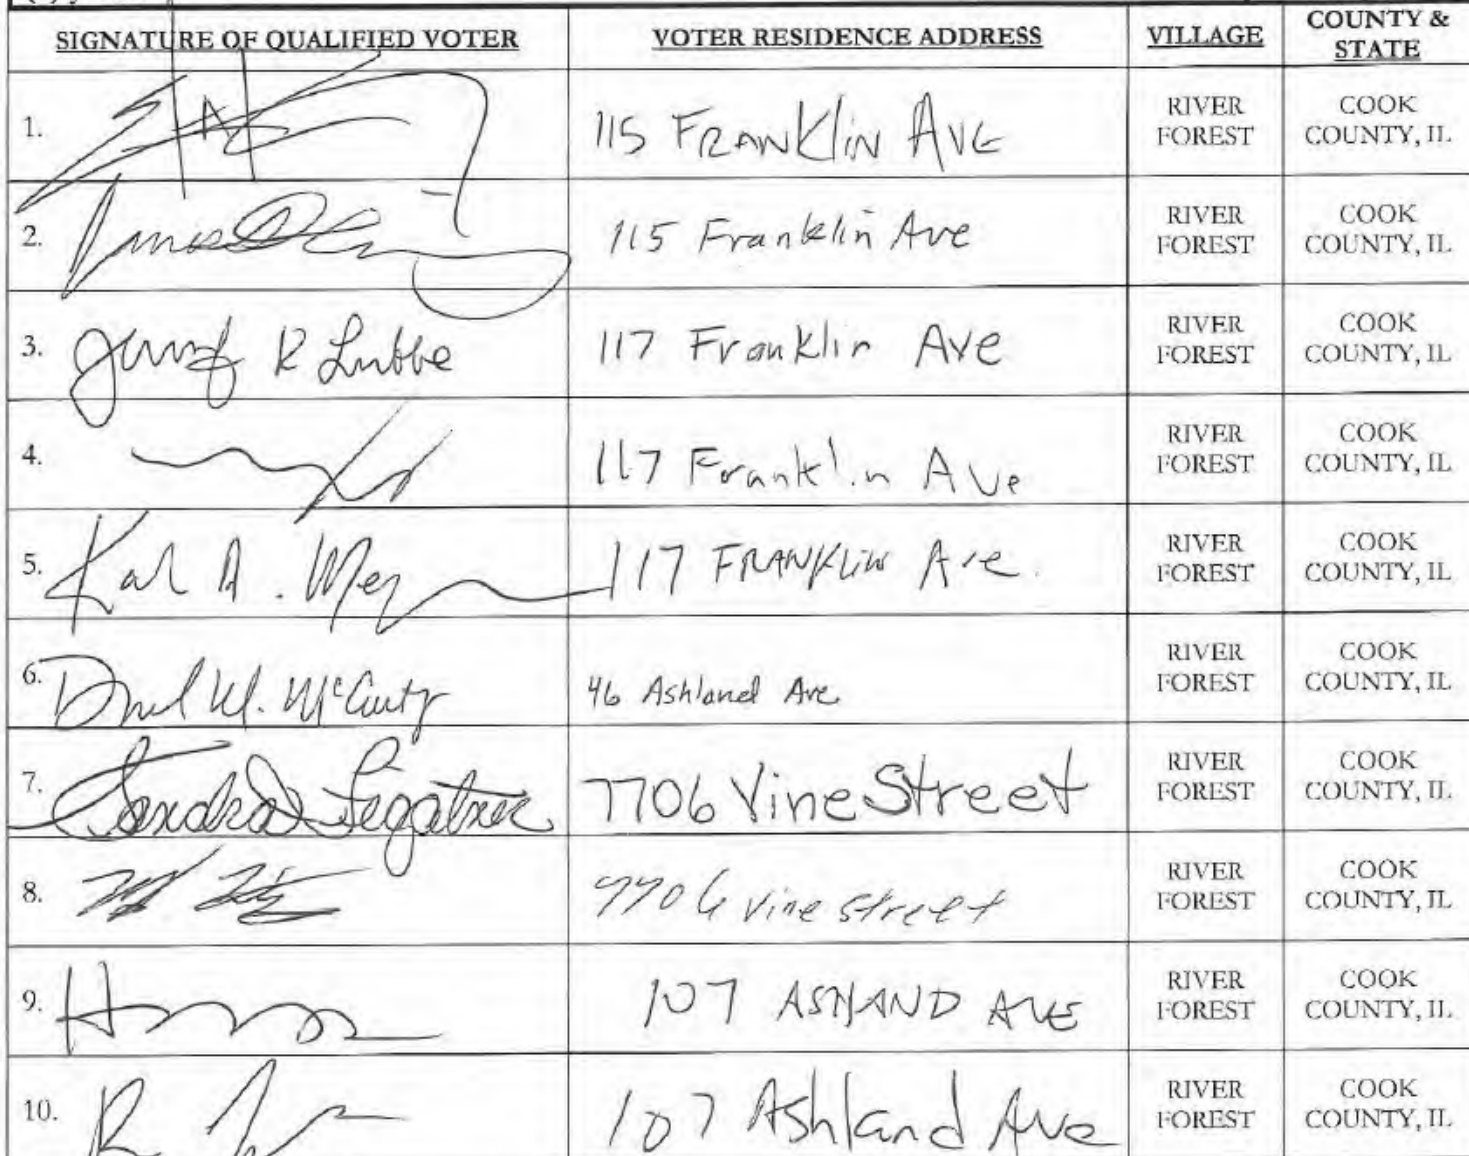 SIGNATURE OF QUALIFIED VOTER VOTER RESIDENCE ADDRESS VILLAGE COUNTY & STATE
1. 115 FRANKlin AVE RIVER FOREST COOK COUNTY, IL
2. 115 Franklin Ave RIVER FOREST COOK COUNTY, IL
3. R Lubbe 117 Franklin Ave RIVER FOREST COOK COUNTY, IL
4. 117 Franklin Ave RIVER FOREST COOK COUNTY, IL
5. A. 117 FRANKLIN Ave. RIVER FOREST COOK COUNTY, IL
6. 46 Ashland Ave RIVER FOREST COOK COUNTY, IL
7. Sandra 7706 Vine Street RIVER FOREST COOK COUNTY, IL
8. 7706 Vine Street RIVER FOREST COOK COUNTY, IL
9. 107 ASHAND AVE RIVER FOREST COOK COUNTY, IL
10. 107 Ashland Ave RIVER FOREST COOK COUNTY, IL